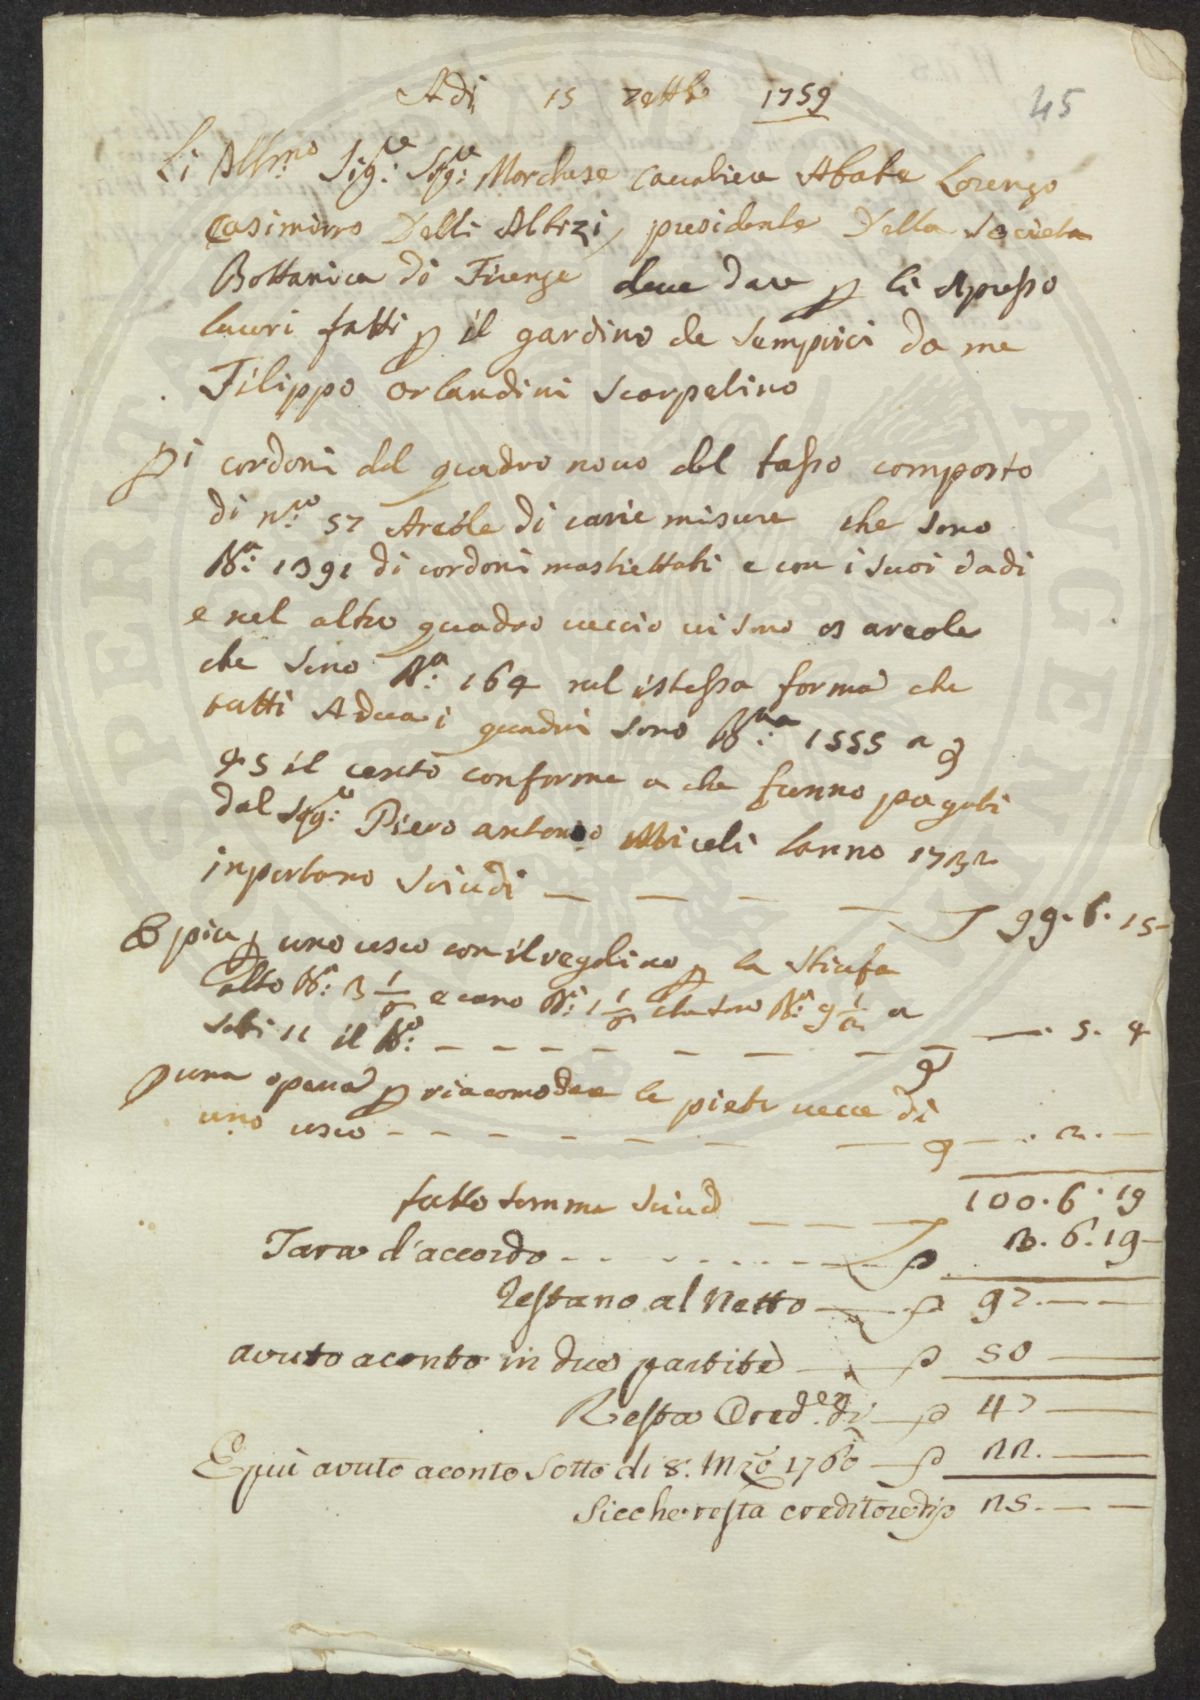 Adi 15 7ettb.e 1759
45
Li Allmo Sig:re Sig:re Marchese Caualiere Abate Lorenzo
Casimirro Delli Albizi, presidente Della Societa
Bottanica di Firenze deve dare p li Apresso
lauori fatti p il gardino de Semprici da me
Filippo Orlandini Scarpelino
p i cordoni del quadro nouo del tasso composto
di n:ro 57 Areole di varie misure che sono
B:a 1391 di cordoni mastiettati e con i suoi dadi
e nel altro quadro veccio vi sono 03 areole
che sono B:a 164 nel istessa forma che
tutti Aduai quadri sono B:a 1555 a
45 il cento conforme a che furno pagati
dal Sig:re Piero antonio Miceli lanno 1732
inportano Scudi — — — — — 99. 6. 15
E piu p uno uscio con il regolino p la Stiufa
alto B: 3 1/2 e largo B: 1 1/2 che sono B: 9 1/2 a
soldi 11 il B:o — — — — — — . 5. 4
p una opera p riacomodare le pietre vecce di
uno uscio — — — — — — . 2. —
fatto somma Scudi — — — 100. 6. 19
Tara d'accordo — — — 3. 6. 19
Restano al Netto — 97. — —
avuto aconto in due partite — 50 —
Resta Cred.e di — 47 —
E piu avuto aconto Sotto di 8. Mzo 1760 — 22. —
Sicche resta creditore di 25. — —